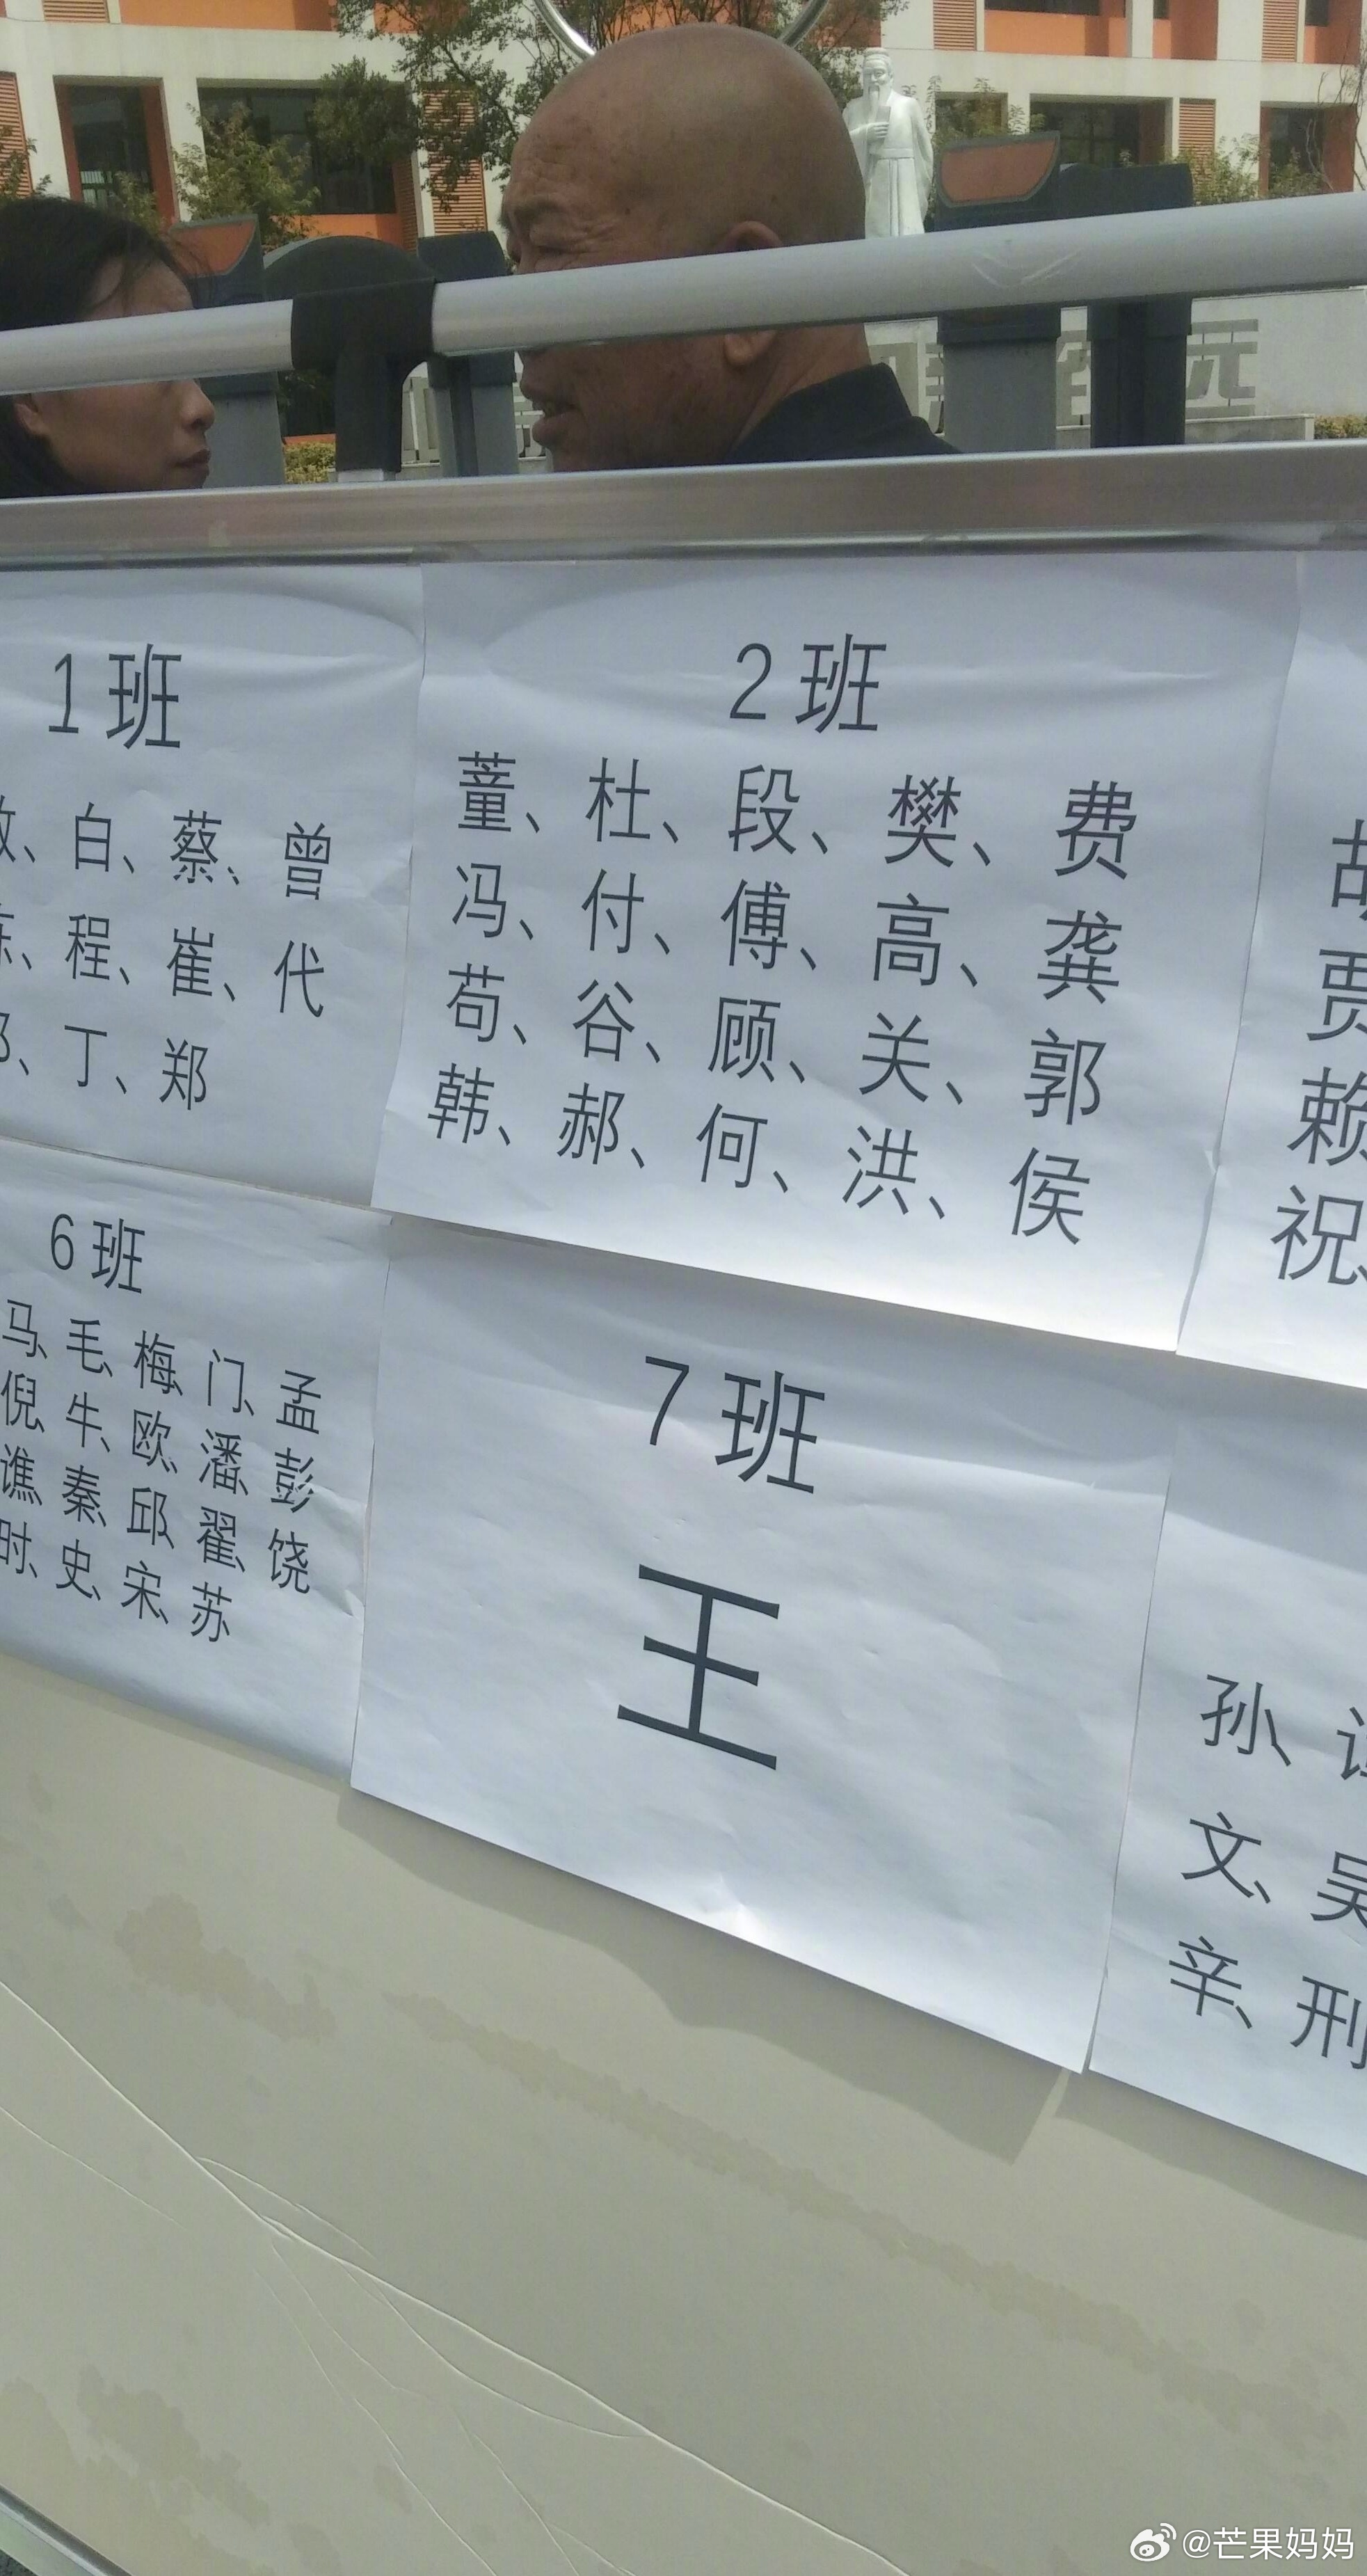 1班
白、蔡、曾
程、崔、代
丁、郑
2班
董、杜、段、樊、费
冯、付、傅、高、龚
苟、谷、顾、关、郭
韩、郝、何、洪、侯
贾
赖
祝、
6班
马、毛、梅、门、孟
倪、牛、欧、潘、彭
谯、秦、邱、翟、饶
时、史、宋、苏
7班
王
孙、
文、吴
辛、刑
@芒果妈妈